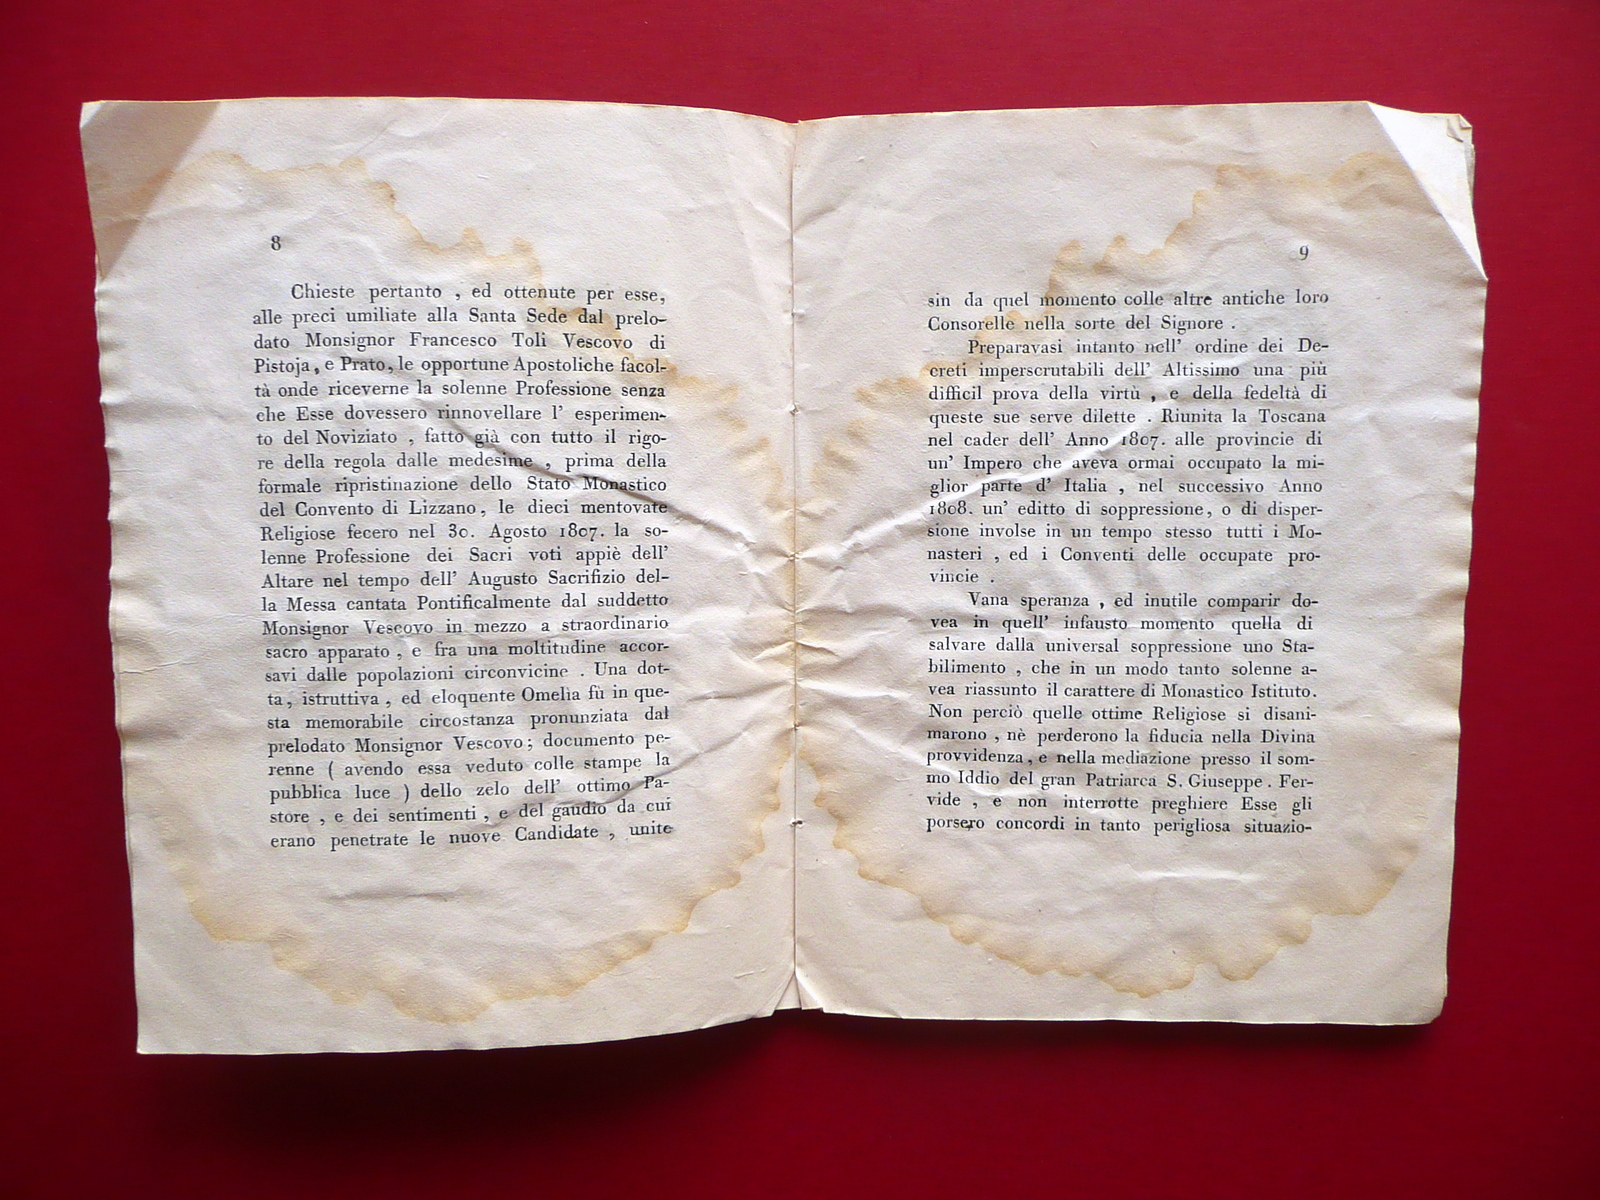 8
Chieste pertanto , ed ottenute per esse,
alle preci umiliate alla Santa Sede dal prelo-
dato Monsignor Francesco Toli Vescovo di
Pistoja, e Prato, le opportune Apostoliche facol-
tà onde riceverne la solenne Professione senza
che Esse dovessero rinnovellare l' esperimen-
to del Noviziato , fatto già con tutto il rigo-
re della regola dalle medesime , prima della
formale ripristinazione dello Stato Monastico
del Convento di Lizzano, le dieci mentovate
Religiose fecero nel 30. Agosto 1807. la so-
lenne Professione dei Sacri voti appiè dell'
Altare nel tempo dell' Augusto Sacrifizio del-
la Messa cantata Pontificalmente dal suddetto
Monsignor Vescovo in mezzo a straordinario
sacro apparato , e fra una moltitudine accor-
savi dalle popolazioni circonvicine . Una dot-
ta, istruttiva , ed eloquente Omelia fù in que-
sta memorabile circostanza pronunziata dal
prelodato Monsignor Vescovo; documento pe-
renne ( avendo essa veduto colle stampe la
pubblica luce ) dello zelo dell' ottimo Pa-
store , e dei sentimenti , e del gaudio da cui
erano penetrate le nuove Candidate , unite
9
sin da quel momento colle altre antiche loro
Consorelle nella sorte del Signore .
Preparavasi intanto nell' ordine dei De-
creti imperscrutabili dell' Altissimo una più
difficil prova della virtù , e della fedeltà di
queste sue serve dilette . Riunita la Toscana
nel cader dell' Anno 1807. alle provincie di
un' Impero che aveva ormai occupato la mi-
glior parte d' Italia , nel successivo Anno
1808. un' editto di soppressione, o di disper-
sione involse in un tempo stesso tutti i Mo-
nasteri , ed i Conventi delle occupate pro-
vincie .
Vana speranza , ed inutile comparir do-
vea in quell' infausto momento quella di
salvare dalla universal soppressione uno Sta-
bilimento , che in un modo tanto solenne a-
vea riassunto il carattere di Monastico Istituto.
Non perciò quelle ottime Religiose si disani-
marono , nè perderono la fiducia nella Divina
provvidenza, e nella mediazione presso il som-
mo Iddio del gran Patriarca S. Giuseppe. Fer-
vide , e non interrotte preghiere Esse gli
porsero concordi in tanto perigliosa situazio-